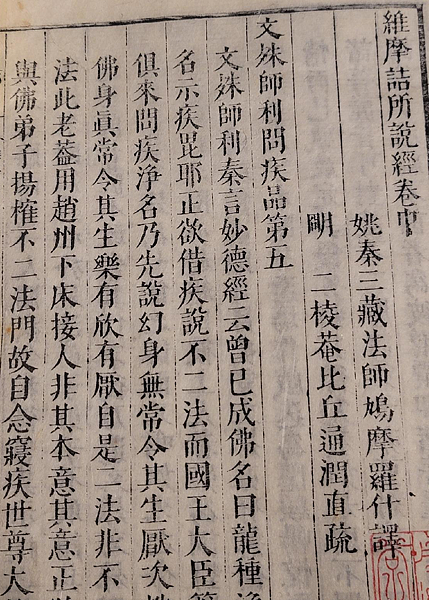 維摩詰所說經卷中
姚秦三藏法師鳩摩羅什譯
明 二楞菴比丘通潤直疏
文殊師利問疾品第五
文殊師利秦言妙德經云曾已成佛名曰龍種
名示疾毘耶正欲借疾說不二法而國王大臣等
俱來問疾淨名乃先說幻身無常令其生厭次
佛身眞常令其生樂有欣有厭自是二法非不
法此老葢用趙州下床接人非其本意其意正
與佛弟子揚榷不二法門故自念寢疾世尊大